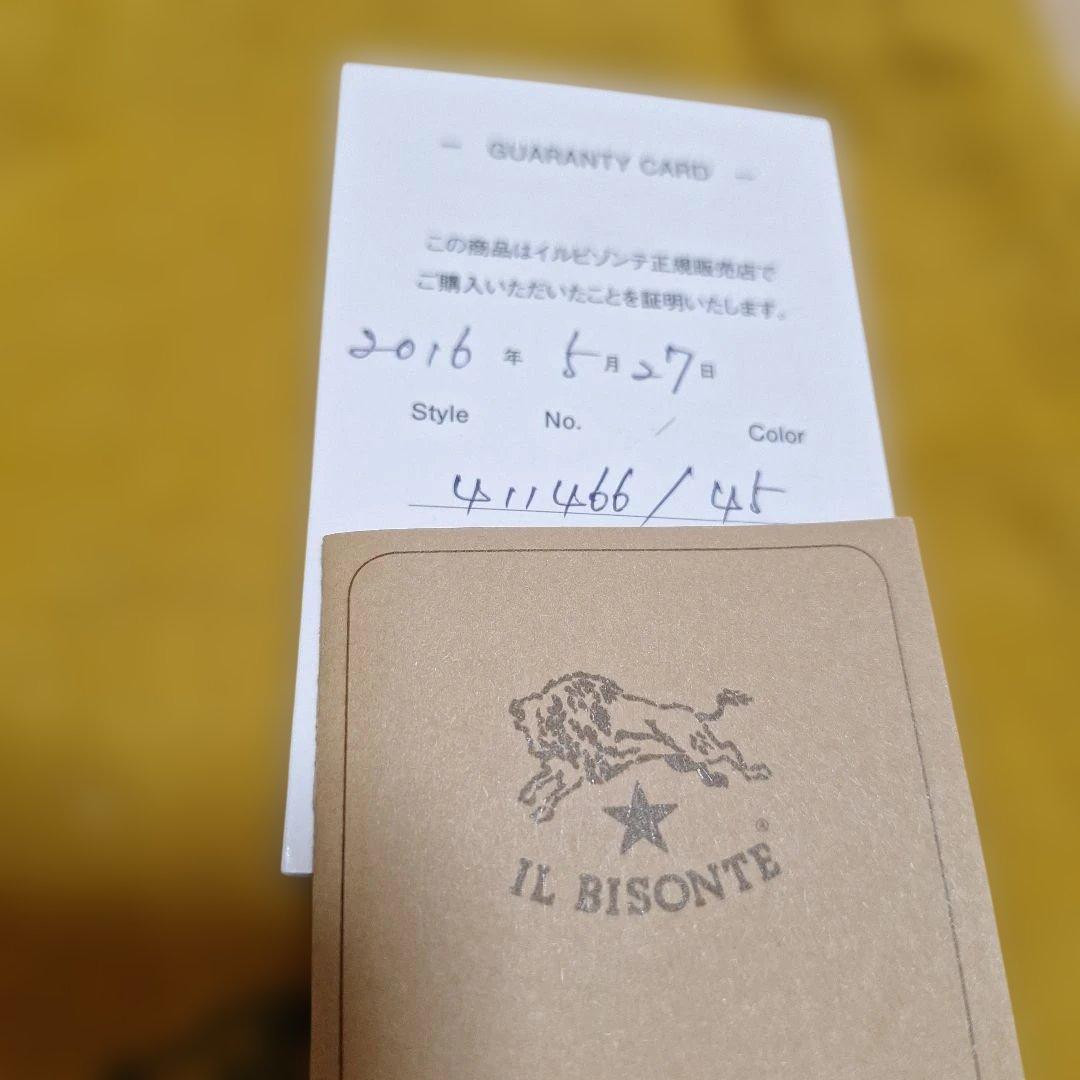 — GUARANTY CARD —
この商品はイルビゾンテ正規販売店で
ご購入いただいたことを証明いたします。
2016 年 5月27日
Style No. / Color
411466 / 45
®
IL BISONTE